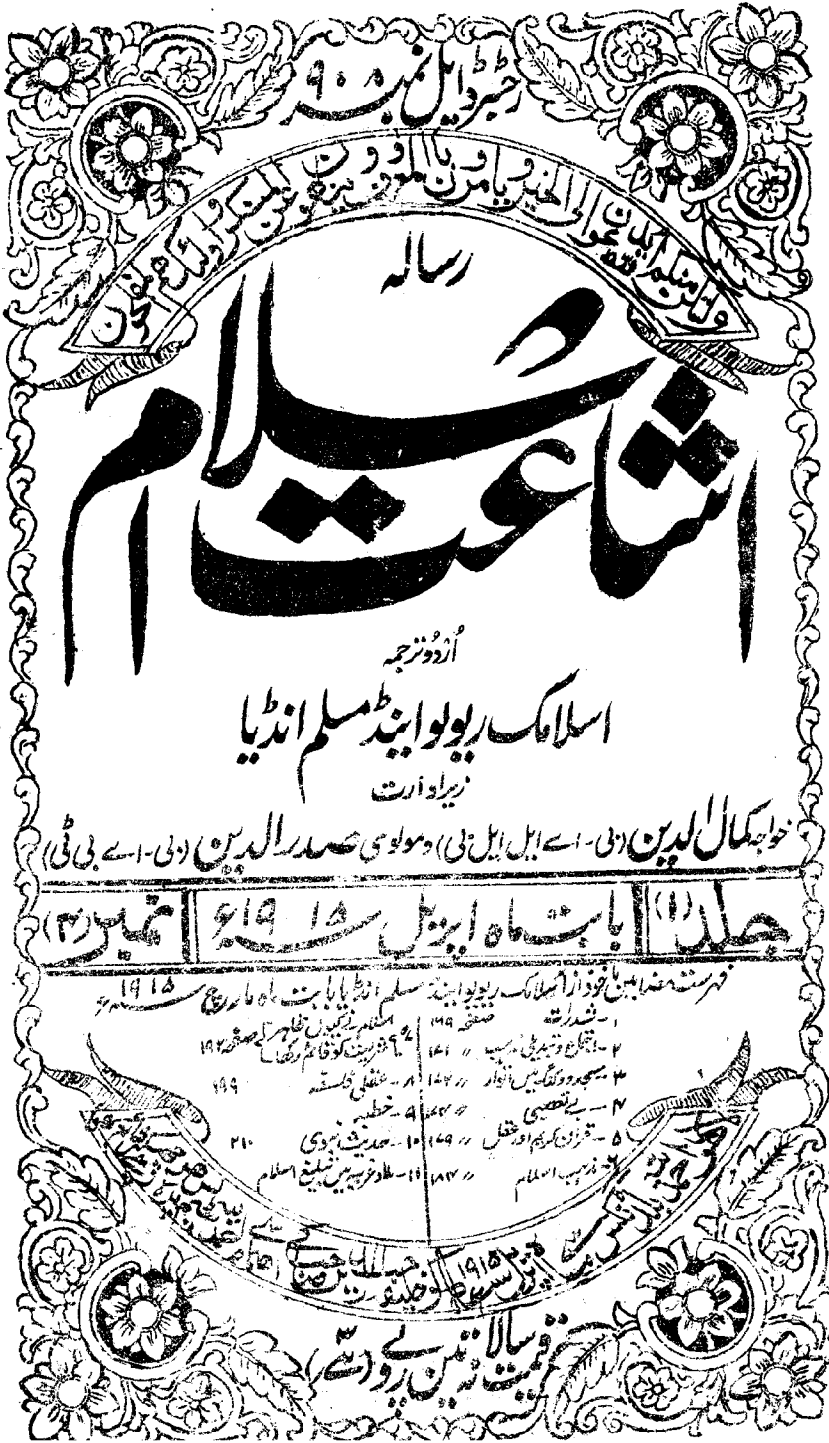 رجسٹرڈ ایل نمبر ۹۰۸
ولتکن منکم امۃ یدعون الی الخیر ویامرون بالمعروف وینھون عن المنکر واولئک ھم المفلحون
رسالہ
اشاعت اسلام
اُردو ترجمہ
اسلامک ریویو اینڈ مسلم انڈیا
زیر ادارت
خواجہ کمال الدین (بی-اے ایل ایل بی) و مولوی صدر الدین (بی-اے بی ٹی)
جلد (۱) بابت ماہ اپریل ۱۹۱۵ء نمبر (۴)
فہرست مضامین ماخوذ از اسلامک ریویو اینڈ مسلم انڈیا بابت ماہ مارچ ۱۹۱۵ء
۱- شذرات صفحہ ۱۶۹
۲- مذہب ۱۷۱
۳- مسجد ووکنگ میں اتوار
۴- بے تعصبی
۵- قرآن کریم اور عقل ۱۷۹
مذہب اسلام
صفحہ ۱۹۲
۸- عقلی فلسفہ ۱۹۹
۹- خطبہ
۱۰- حدیث نبوی ۲۱۰
۱۱- بلاد غربیہ میں تبلیغ اسلام
اپریل ۱۹۱۵
قیمت سالانہ تین روپے